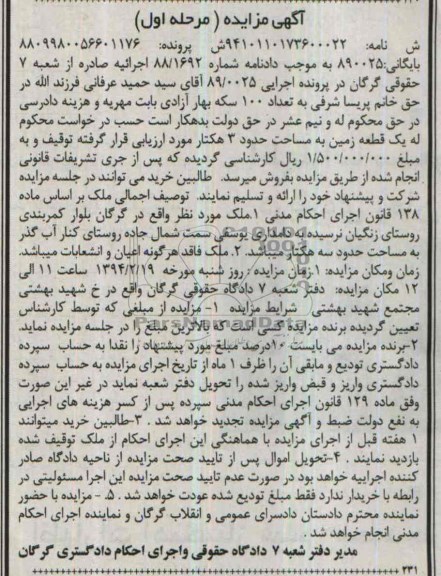 آگهی مزایده ( مرحله اول)
ش نامه: ۹۴۱۰۱۱۰۱۷۳۶۰۰۰۲۲ش پرونده: ۸۸۰۹۹۸۰۰۵۶۶۰۱۱۷۶
بایگانی:۸۹۰۰۲۵ به موجب دادنامه شماره ۸۸/۱۶۹۲ اجرائیه صادره از شعبه ۷
حقوقی گرگان در پرونده اجرایی ۸۹/۰۰۲۵ آقای سید حمید عرفانی فرزند الله در
حق خانم پریسا شرفی به تعداد ۱۰۰ سکه بهار آزادی بابت مهریه و هزینه دادرسی
در حق محکوم له و نیم عشر در حق دولت بدهکار است حسب در خواست محکوم
له یک قطعه زمین به مساحت حدود ۳ هکتار مورد ارزیابی قرار گرفته توقیف و به
مبلغ ۱/۵۰۰/۰۰۰/۰۰۰ ریال کارشناسی گردیده که پس از جری تشریفات قانونی
انجام شده از طریق مزایده بفروش میرسد. طالبین خرید می توانند در جلسه مزایده
شرکت و پیشنهاد خود را ارائه و تسلیم نمایند. توصیف اجمالی ملک بر اساس ماده
۱۳۸ قانون اجرای احکام مدنی ۱.ملک مورد نظر واقع در گرگان بلوار کمربندی
روستای زنگیان نرسیده به دامداری یوسفی سمت شمال جاده روستای کنار آب گذر
به مساحت حدود سه هکتار میباشد. ۲. ملک فاقد هرگونه اعیان و انشعابات میباشد.
زمان ومکان مزایده: ۱.زمان مزایده : روز شنبه مورخه ۱۳۹۴/۲/۱۹ ساعت ۱۱ الی
۱۲ مکان مزایده: دفتر شعبه ۷ دادگاه حقوقی گرگان واقع در خ شهید بهشتی
مجتمع شهید بهشتی شرایط مزایده ۱- مزایده از مبلغی که توسط کارشناس
تعیین گردیده برنده مزایده کسی است که بالاترین مبلغ را در جلسه مزایده نماید.
۲-برنده مزایده می بایست ۱۰درصد مبلغ مورد پیشنهاد را نقدا به حساب سپرده
دادگستری تودیع و مابقی آن را ظرف ۱ ماه از تاریخ اجرای مزایده به حساب سپرده
دادگستری واریز و قبض واریز شده را تحویل دفتر شعبه نماید در غیر این صورت
وفق ماده ۱۲۹ قانون اجرای احکام مدنی سپرده پس از کسر هزینه های اجرایی
به نفع دولت ضبط و آگهی مزایده تجدید خواهد شد . ۳-طالبین خرید میتوانند
۱ هفته قبل از اجرای مزایده با هماهنگی این اجرای احکام از ملک توقیف شده
بازدید نمایند . ۴-تحویل اموال پس از تایید صحت مزایده از ناحیه دادگاه صادر
کننده اجراییه خواهد بود در صورت عدم تایید صحت مزایده این اجرا مسئولیتی در
رابطه با خریدار ندارد فقط مبلغ تودیع شده عودت خواهد شد . ۵. - مزایده با حضور
نماینده محترم دادستان دادسرای عمومی و انقلاب گرگان و نماینده اجرای احکام
مدنی انجام خواهد شد .
مدیر دفتر شعبه ۷ دادگاه حقوقی واجرای احکام دادگستری گرگان
۲۳۱